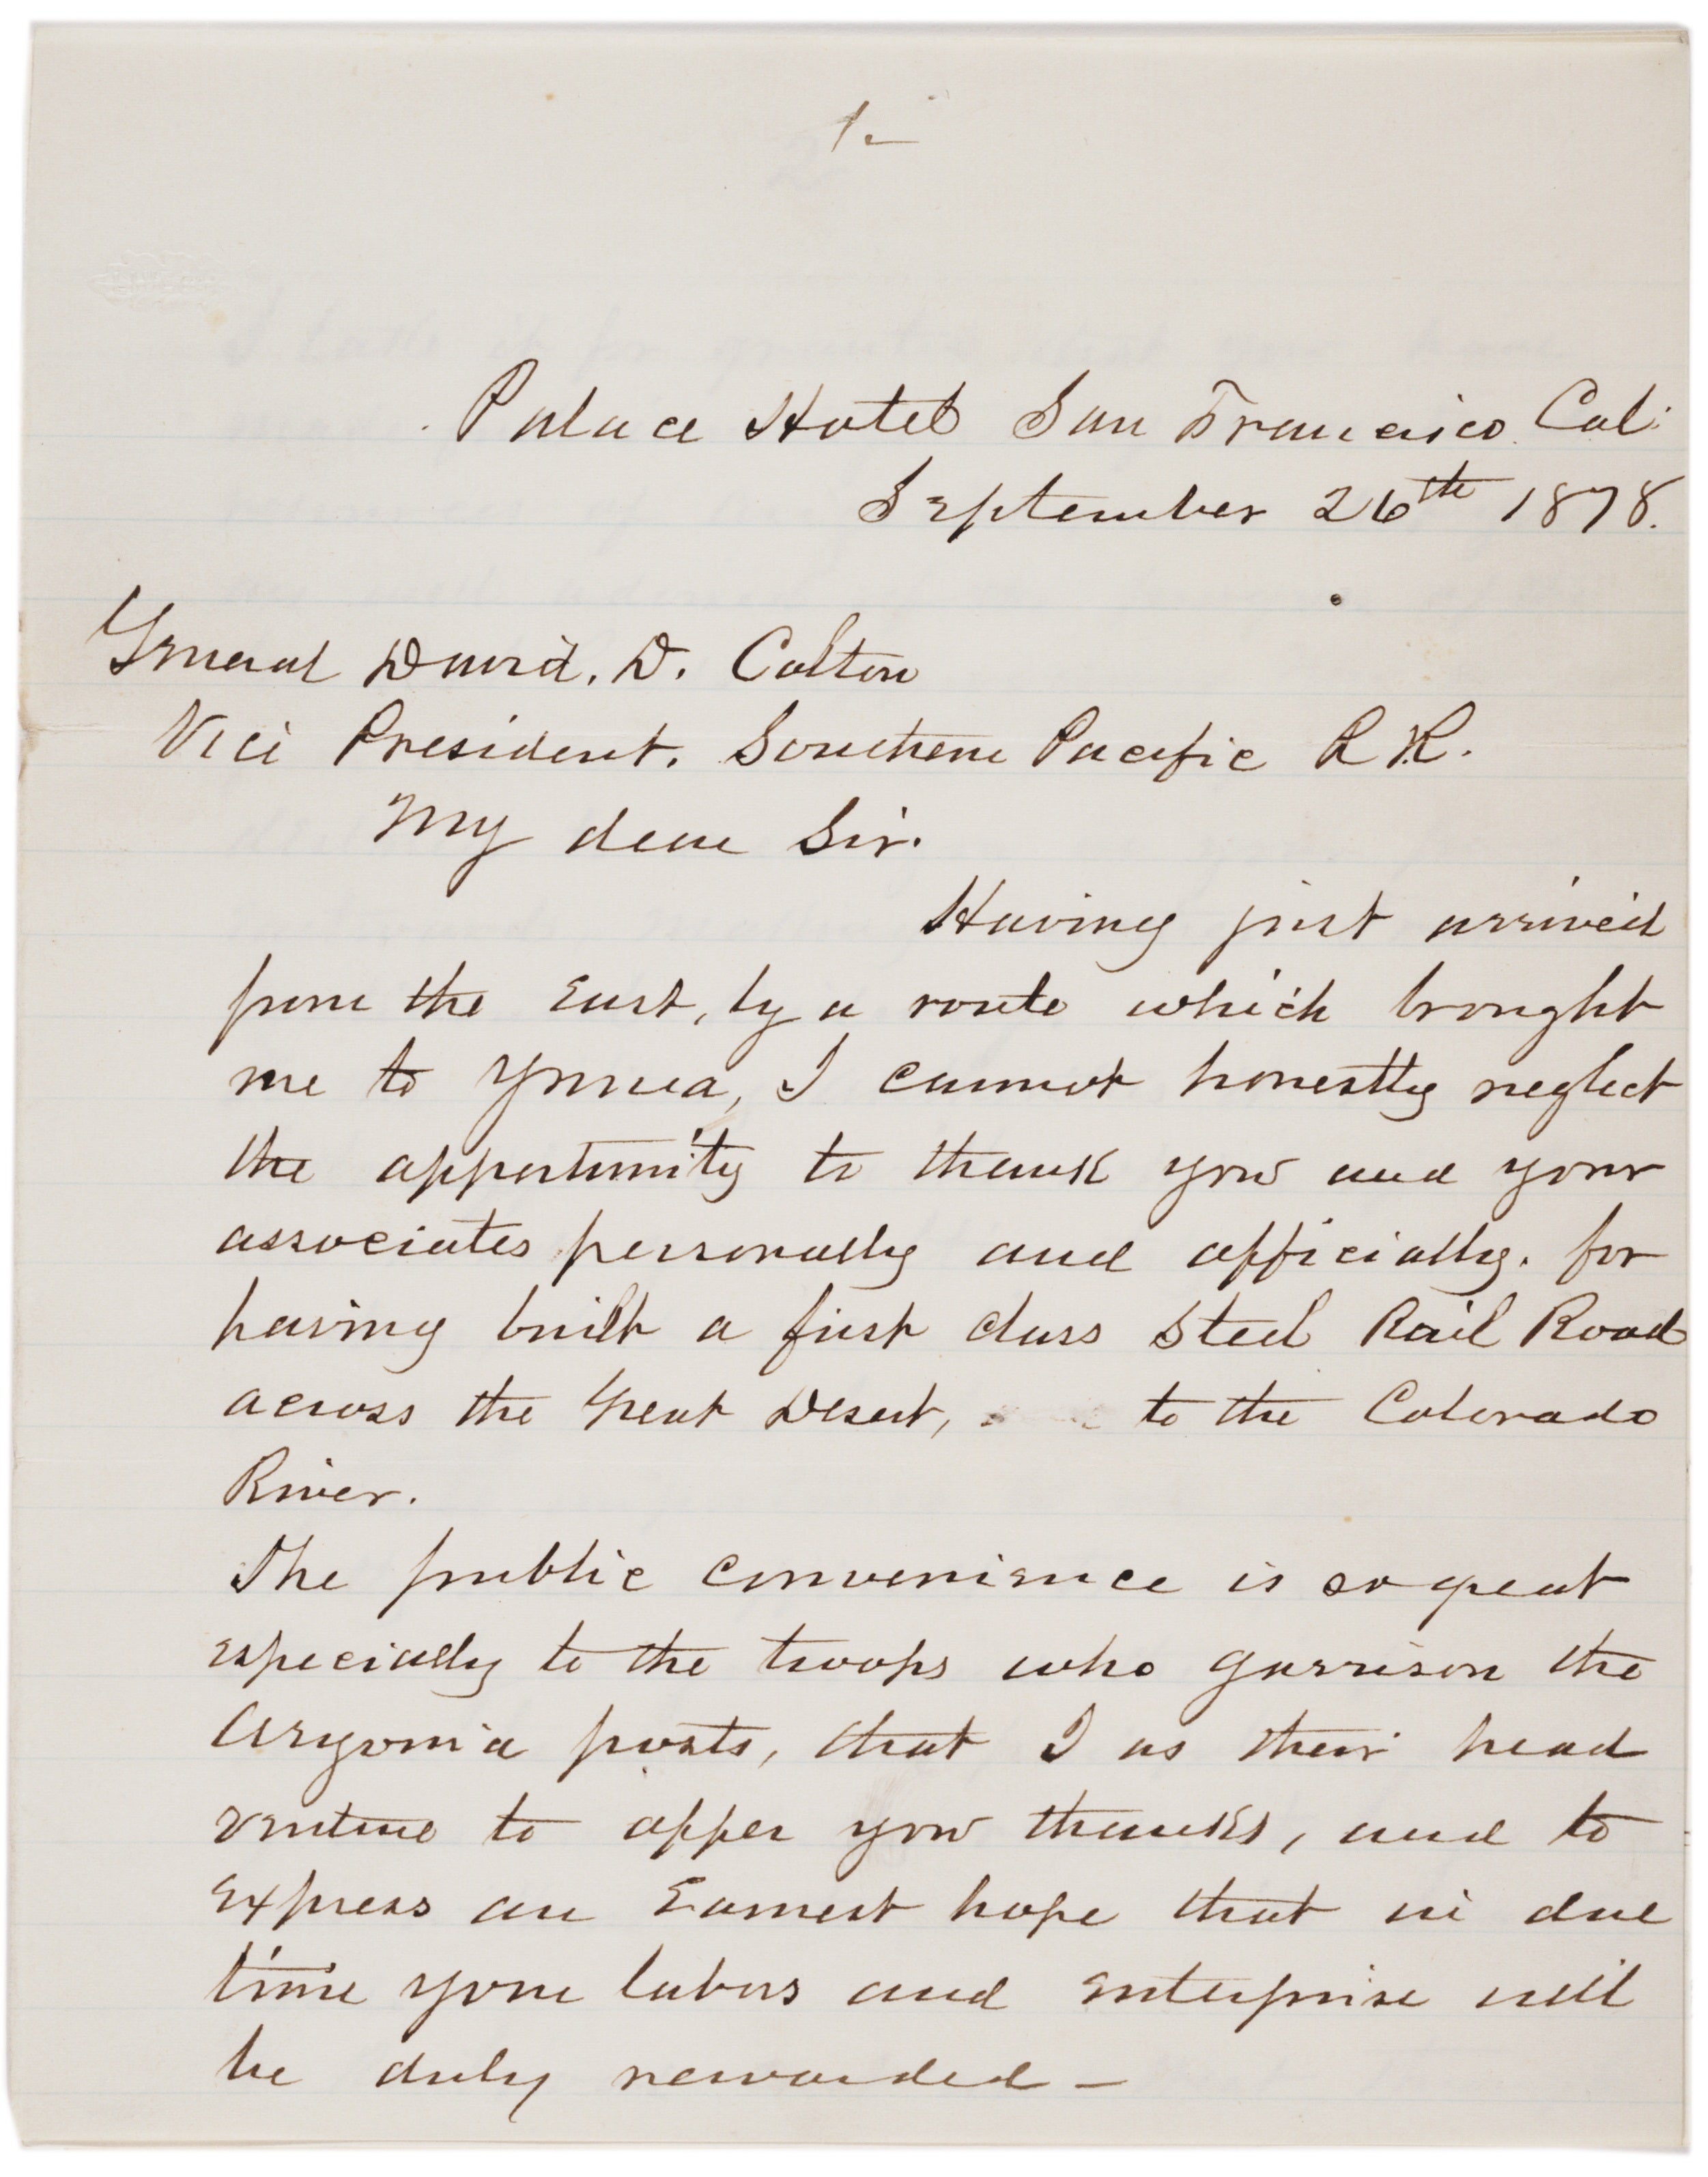 1.
Palace Hotel San Francisco Cal:
September 26th 1878.
General David. D. Colton
Vice President. Southern Pacific R.R.
My dear Sir.
Having just arrived
from the East, by a route which brought
me to Yuma, I cannot honestly neglect
the opportunity to thank you and your
associates personally and officially. for
having built a first class Steel Rail Road
across the Great Desert, to the Colorado
River.
The public convenience is so great
especially to the troops who garrison the
Aryonia posts, that I as their head
venture to offer you thanks, and to
express an Earnest hope that in due
time your labors and enterprise will
be duly rewarded –